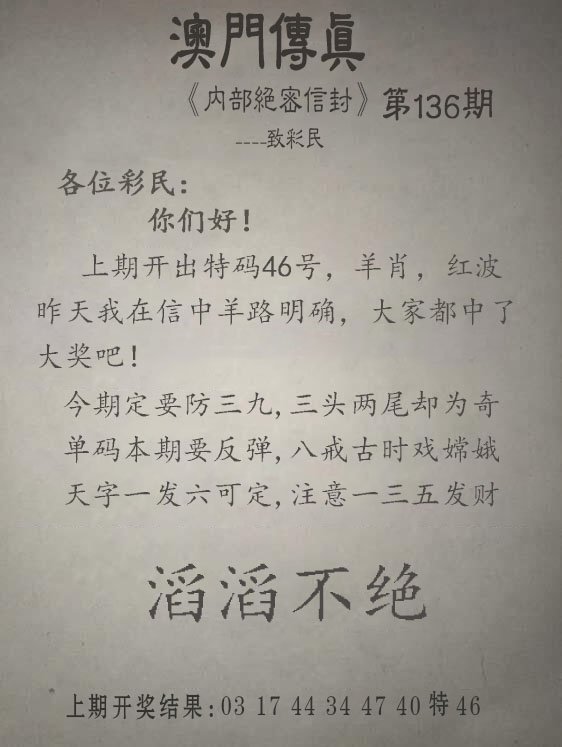 澳門傳眞
《内部絕密信封》第136期
----致彩民
各位彩民：
你们好！
上期开出特码46号，羊肖，红波
昨天我在信中羊路明确，大家都中了
大奖吧！
今期定要防三九,三头两尾却为奇
单码本期要反弹,八戒古时戏嫦娥
天字一发六可定,注意一三五发财
滔滔不绝
上期开奖结果:03 17 44 34 47 40 特 46